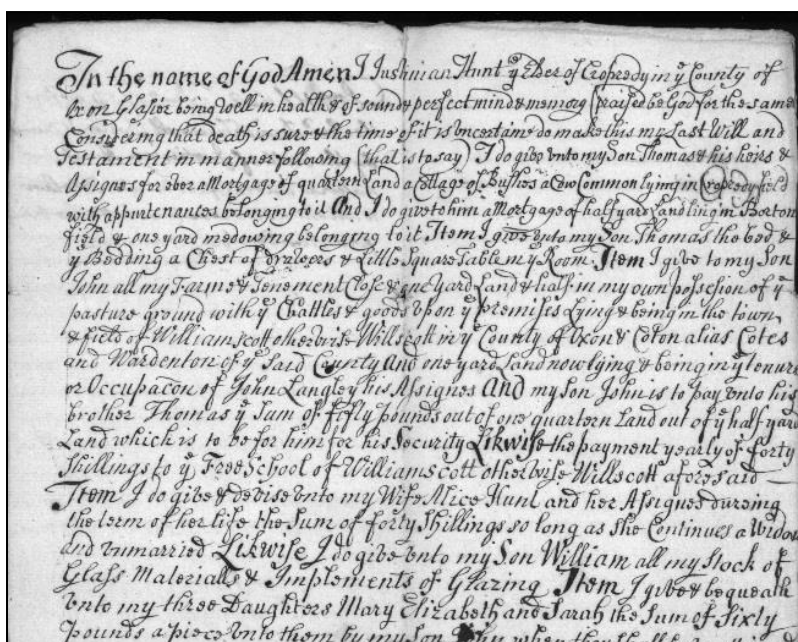 In the name of God Amen I Justinian Hunt ye Elder of Cropredy in ye County of
Oxon Glasier being well in health & of sound & perfect mind & memory (praised be God for the same
Considering that death is sure & the time of it is uncertaine do make this my Last Will and
Testament in manner following (that is to say) I do give unto my Son Thomas & his heirs &
Assignes for ever a Mortgage of quartern Land a Cottage of Bushes a Cow Common lying in Cropredy field
with appurtenances belonging to it And I do give to him a Mortgage of half yard Land ling in Borton
field & one yard medowing belonging to it Item I give unto my Son Thomas the bed &
ye Bedding a Chest of Drawers & Little Square Table in my Room Item I give to my Son
John all my Farme & Tenement Close & one yard Land & half in my own possesion of ye
pasture ground with ye Chattles & goods upon ye premises Lying & being in the town
& field of Williamscott otherwise Willscott in ye County of Oxon & Coton alias Cotes
and Wardenton of ye Said County And one yard Land now lying & being in ye tenure
or Occupacon of John Langley his Assignes AND my Son John is to pay unto his
brother Thomas ye Sum of fifty pounds out of one quartern Land out of ye half yard
Land which is to be for him for his Security Likwise the payment yearly of forty
Shillings to ye Free School of Williamscott otherwise Willscott aforesaid
Item I do give & devise unto my Wife Alice Hunt and her Assignes dureing
the term of her life the Sum of forty Shillings so long as She Continues a Widow
and unmarried Likwise I do give unto my Son William all my stock of
Glass Materialls & Implements of Glazing Item I give & bequeath
unto my three Daughters Mary Elizabeth and Sarah the Sum of Sixty
pounds a piece unto them by my Son John when they shall